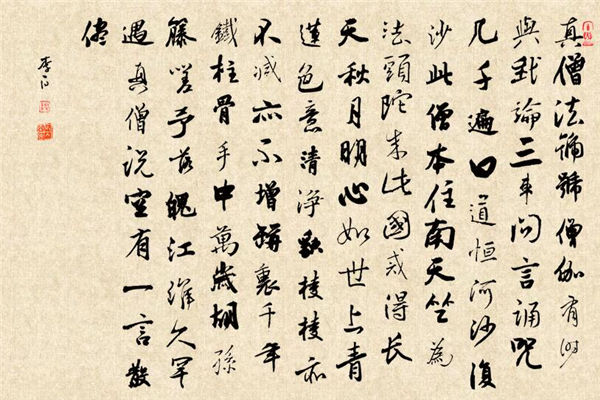 真僧法號號僧伽有時
與我論三車問言誦咒
几千遍口道恒河沙復
沙此僧本住南天竺為
法頭陀来此國戒得長
天秋月明心如世上青
蓮色意清淨貌棱棱亦
不减亦不增瓶裏千年
鐵柱骨手中萬歲胡孫
籐嗟予落魄江淮久罕
遇真僧説空有一言散
儘
李白